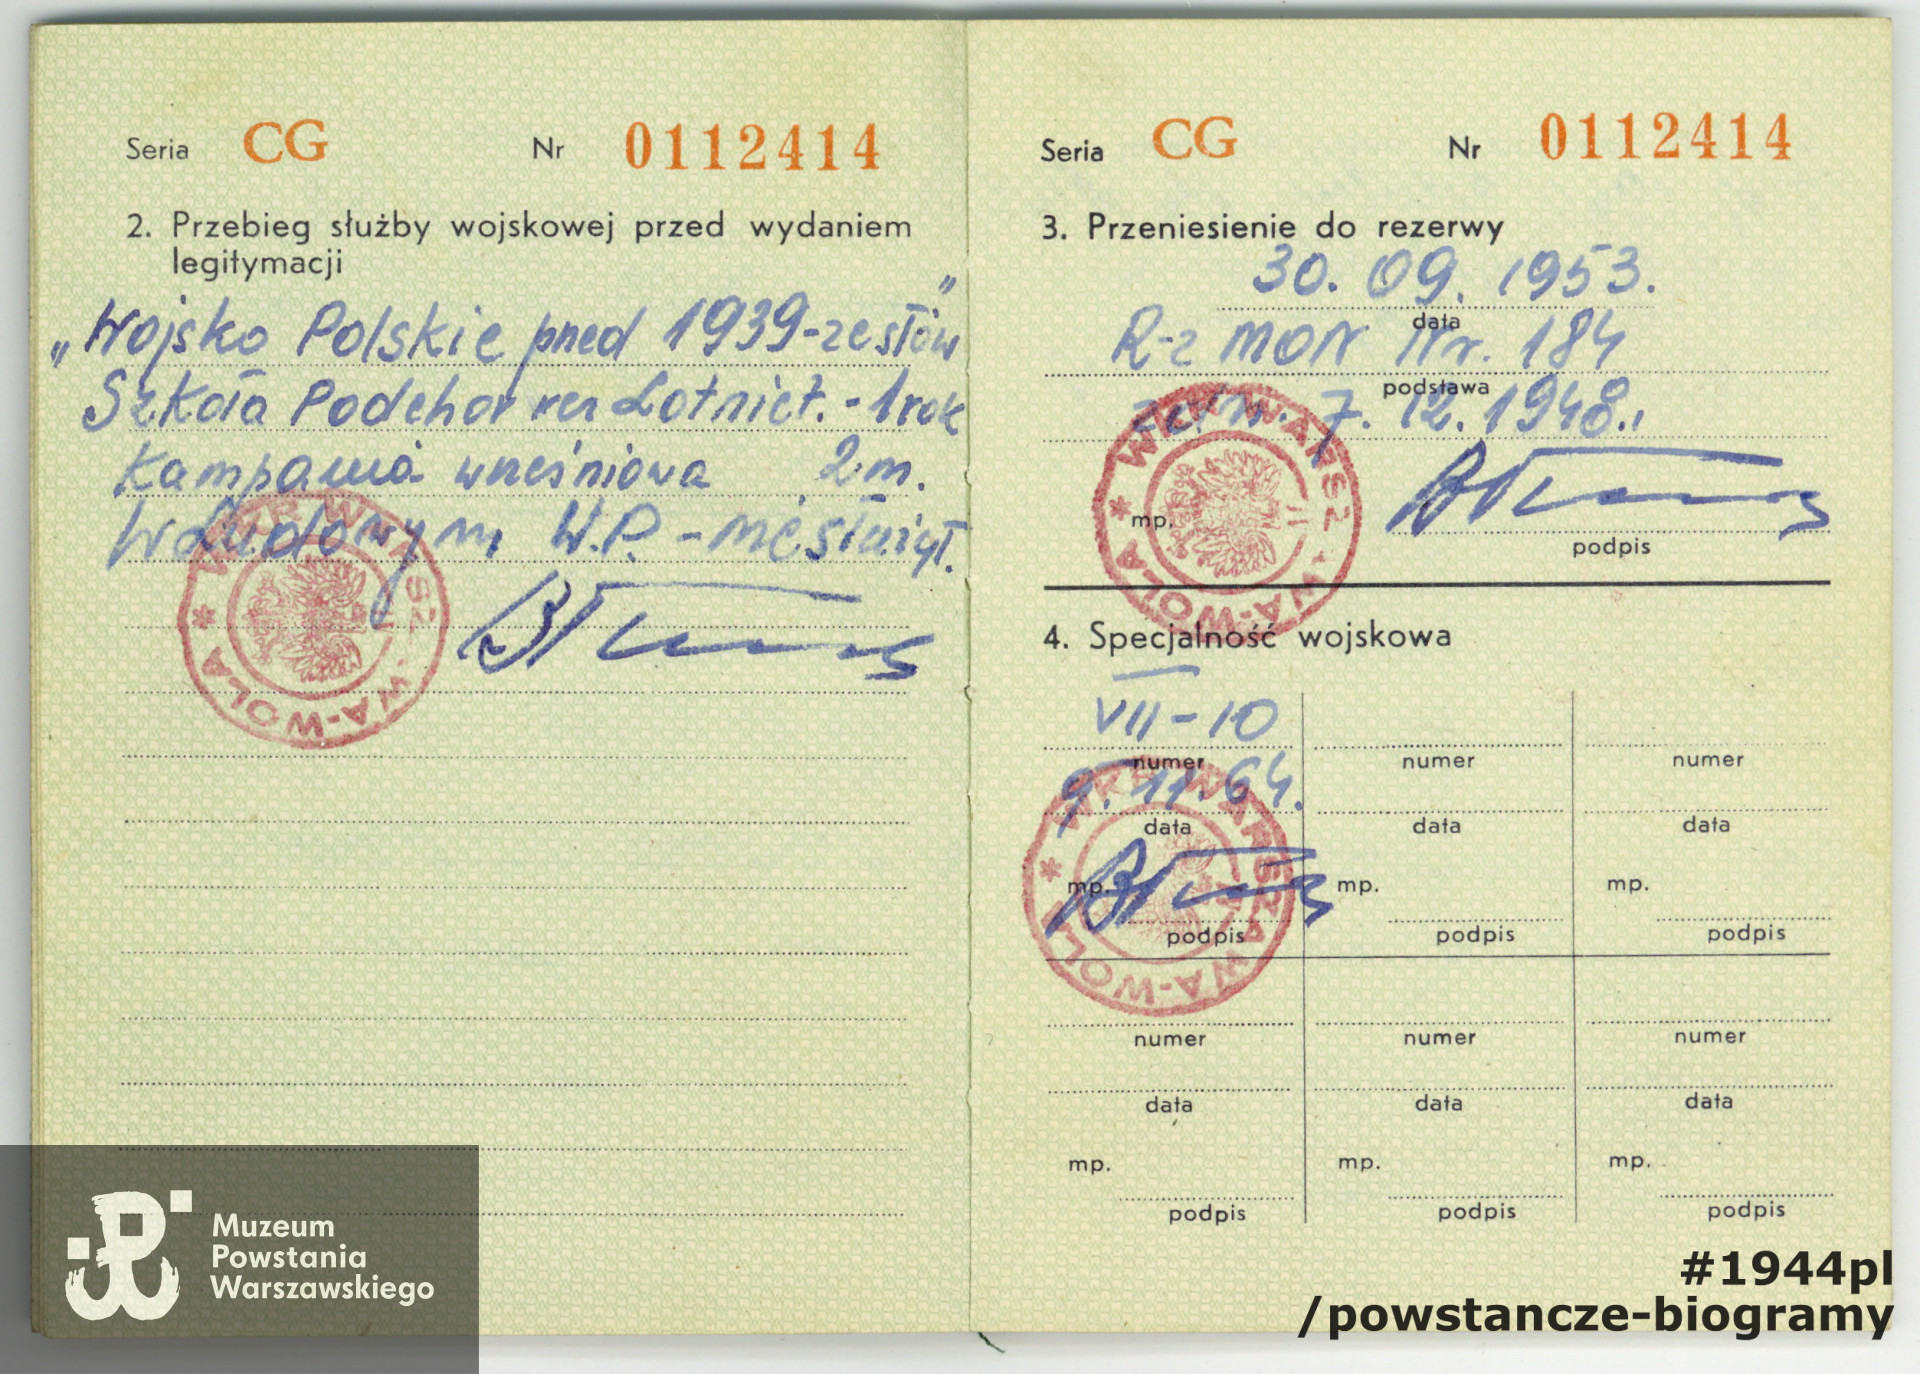 Seria CG Nr 0112414
2. Przebieg służby wojskowej przed wydaniem
legitymacji
„Wojsko Polskie przed 1939-
Szkoła Podchor rez Lotnict. - 1 rok
Kampania wrześniowa 2 m.
W Ludowym W.P. - nie służył.
WKR WARSZAWA-WOLA
Seria CG Nr 0112414
3. Przeniesienie do rezerwy
30. 09. 1953.
data
R-z MON Nr. 184
podstawa
7. 12. 1948.
WKR WARSZAWA-WOLA
mp.
podpis
4. Specjalność wojskowa
VII-10
numer numer numer
9. 11. 64.
data data data
WKR WARSZAWA-WOLA
mp. mp. mp.
podpis podpis podpis
numer numer numer
data data data
mp. mp. mp.
podpis podpis podpis
Muzeum
Powstania
Warszawskiego
#1944pl
/powstancze-biogramy